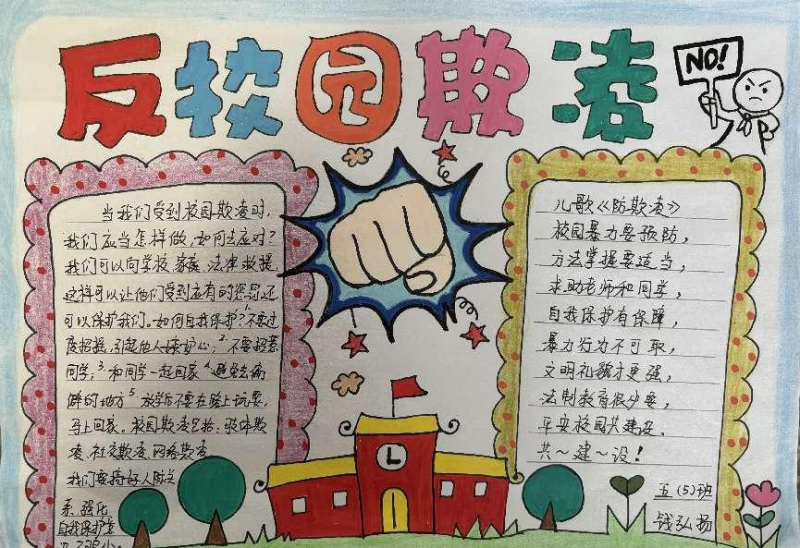 反校园欺凌
NO!
当我们受到校园欺凌时,
我们应当怎样做,如何去应对?
我们可以向学校、家庭、法律救援,
这样可以让他们受到应有的惩罚还
可以保护我们。如何自我保护?1.不要过
度招摇,引起他人嫉妒心;2.不要招惹
同学,3.和同学一起回家4.避免去偏
僻的地方5.放学不要在路上玩耍,
马上回家。校园欺凌包括:肢体欺
凌、社交欺凌、网络欺凌
我们要搞好人际关
系,强化
自我保护意
儿歌《防欺凌》
校园暴力要预防,
方法掌握要适当,
求助老师和同学,
自我保护有保障,
暴力行为不可取,
文明礼貌才更强,
法制教育很必要,
平安校园共建设。
共~建~设!
五(5)班
钱弘扬